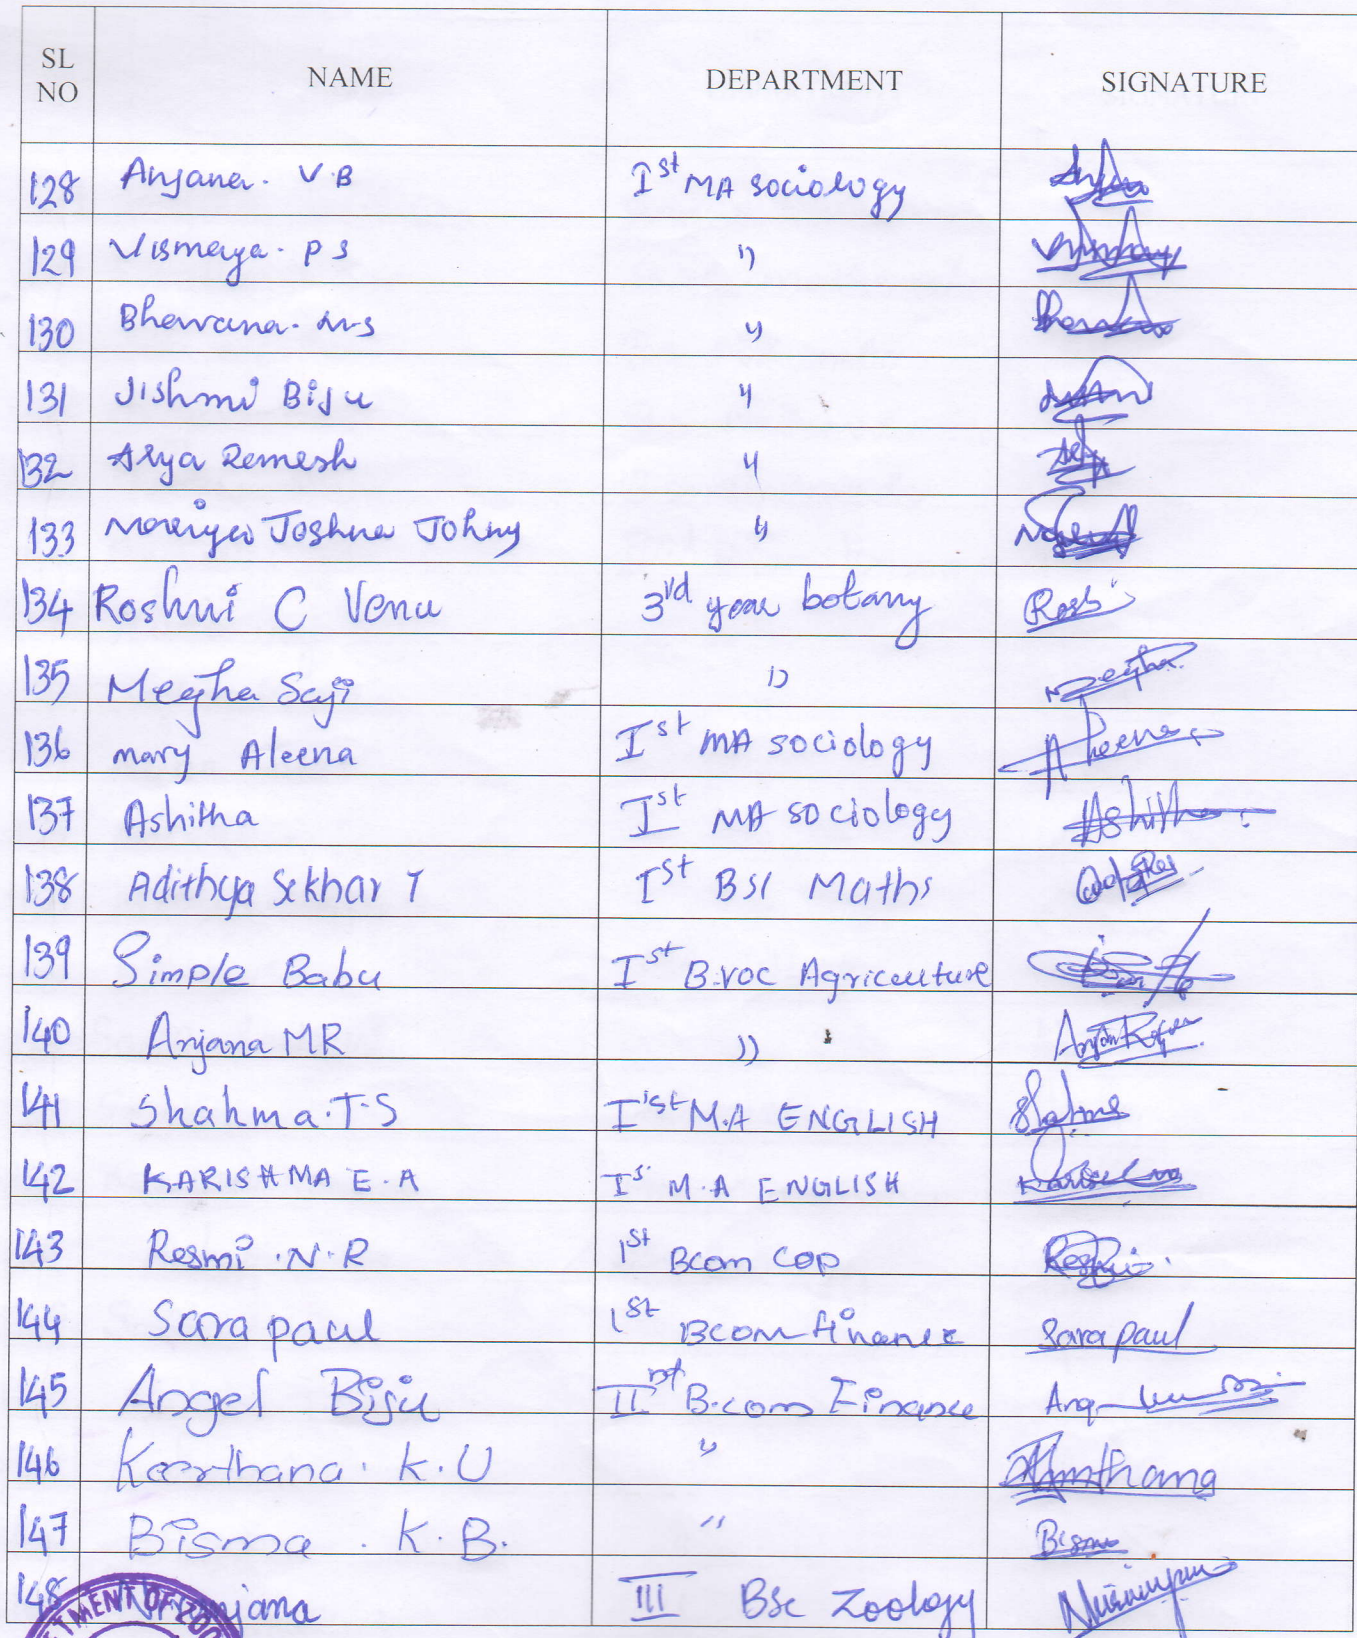 SL NO NAME DEPARTMENT SIGNATURE
128 Anjana. V.B Ist MA sociology
129 Vismaya. P S "
130 Bhavana. M.S "
131 Jishmi Biju "
132 Arya Remesh "
133 Mariya Joshna Johny "
134 Roshni C Venu 3rd year botany
135 Megha Saji " Megha
136 mary Aleena Ist MA sociology Aleena
137 Ashitha Ist MA sociology Ashitha
138 Adithya Sekhar T Ist BSc Maths
139 Simple Babu Ist B.voc Agriculture
140 Anjana MR "
141 Shahma. T.S Ist M.A ENGLISH Shahma
142 KARISHMA E.A Is M.A ENGLISH Karishma
143 Resmi . N. R 1st Bcom cop Resmi
144 Sara paul 1st Bcom finance Sara paul
145 Angel Biju II nd B.com Finance
146 Keerthana. K.U "
147 Bisma . K. B. " Bisma
148 Niranjana III BSc Zoology Niranjana
TMENT OF ZOO